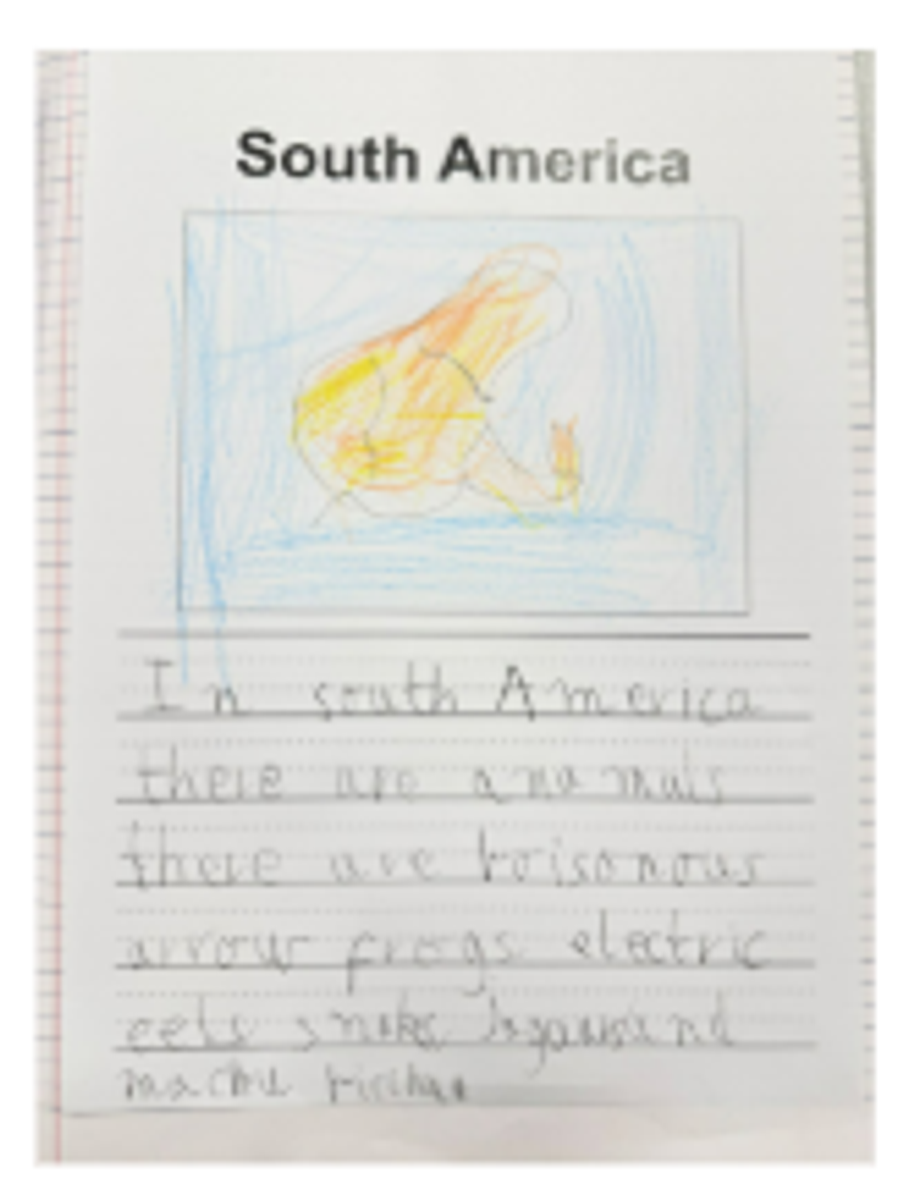 South America
In south America
there are anamals
there are poisonous
arrow frogs electric
eels snakes
machu